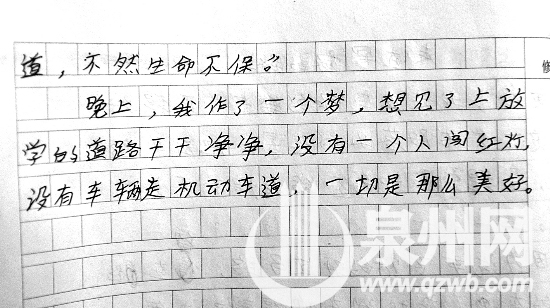 道，不然生命不保。”
晚上，我作了一个梦，想见了上放
学的道路干干净净，没有一个人闯红灯，
没有车辆走机动车道，一切是那么美好。
泉州网
www.qzwb.com